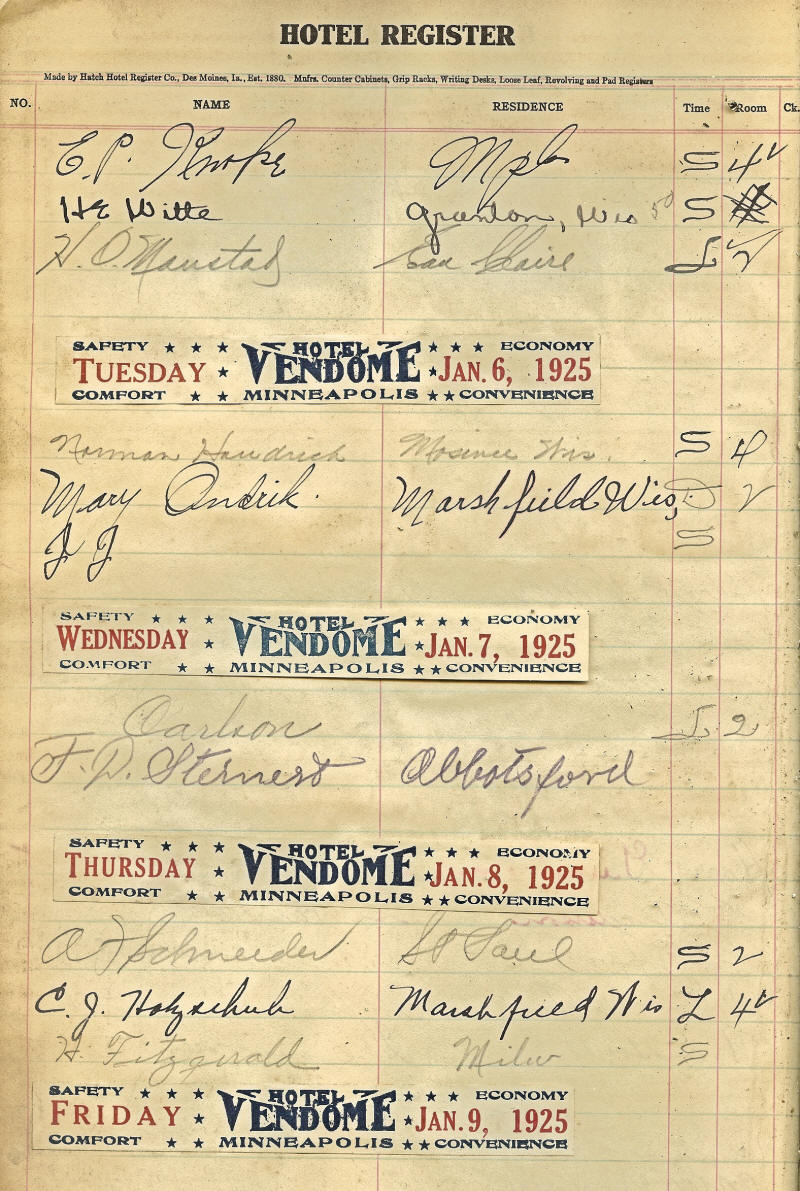 HOTEL REGISTER
Made by Hatch Hotel Register Co., Des Moines, Ia., Est. 1880. Mnfrs. Counter Cabinets, Grip Racks, Writing Desks, Loose Leaf, Revolving and Pad Registers
NO. NAME RESIDENCE Time Room Ck.
E. P. Knoke Mpls S 4
HE Witte Granton, Wis 50 S
H. O. Maustad Eau Claire L 2
SAFETY ★ ★ ★ HOTEL ★ ★ ★ ECONOMY
TUESDAY ★ VENDOME ★ JAN. 6, 1925
COMFORT ★ ★ MINNEAPOLIS ★ ★ CONVENIENCE
Norman Handrich Mosinee Wis. S 4
Mary Ondrik. Marshfield Wis, D 2
J J S
SAFETY ★ ★ ★ HOTEL ★ ★ ★ ECONOMY
WEDNESDAY ★ VENDOME ★ JAN. 7, 1925
COMFORT ★ ★ MINNEAPOLIS ★ ★ CONVENIENCE
Carlson L 2
F. D. Abbotsford
SAFETY ★ ★ ★ HOTEL ★ ★ ★ ECONOMY
THURSDAY ★ VENDOME ★ JAN. 8, 1925
COMFORT ★ ★ MINNEAPOLIS ★ ★ CONVENIENCE
A J Schneider St Paul S 2
C. J. Hotzschuh Marshfield Wis L 4
H. Fitzgerald Milw S
SAFETY ★ ★ ★ HOTEL ★ ★ ★ ECONOMY
FRIDAY ★ VENDOME ★ JAN. 9, 1925
COMFORT ★ ★ MINNEAPOLIS ★ ★ CONVENIENCE